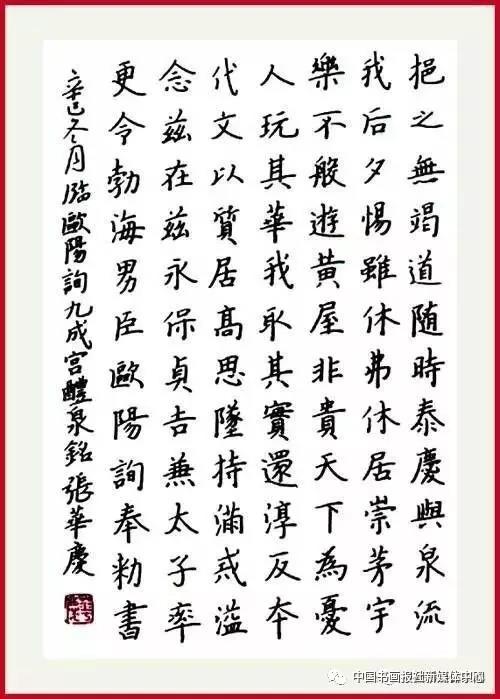 挹之無竭道随時泰慶與泉流
我后夕惕雖休弗休居崇茅宇
樂不般遊黄屋非貴天下為憂
人玩其華我取其實還淳反夲
代文以質居高思墜持滿戒溢
念兹在兹永保貞吉兼太子率
更令勃海男臣歐陽詢奉勑書
辛巳冬月臨歐陽詢九成宫醴泉銘 張華慶
中国书画报社新媒体中心